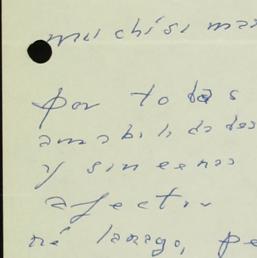 muchísimas
por todas
amabilidades
y sinceros
afectos
né